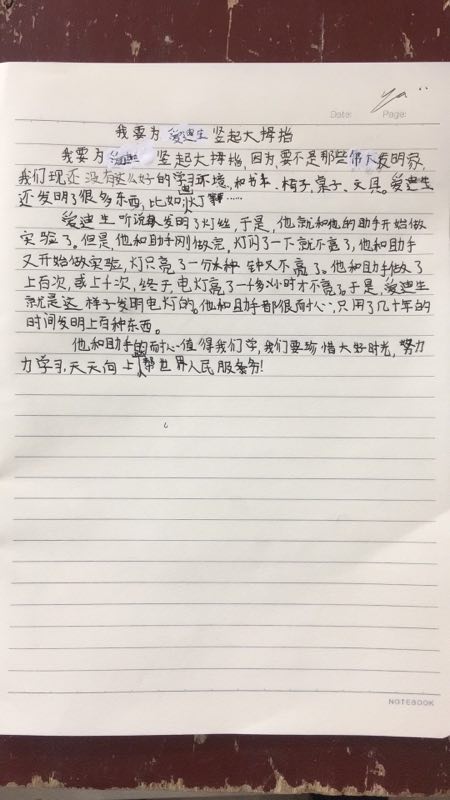 Date: Page:
我要为爱迪生竖起大拇指
我要为爱迪生竖起大拇指,因为,要不是那些伟大发明家,
我们现还没有这么好的学习环境、和书本、椅子、桌子、文具。爱迪生
还发明了很多东西,比如:电灯等……
爱迪生听说发明了灯丝,于是,他就和他的助手开始做
实验了。但是,他和助手刚做完,灯闪了一下就不亮了,他和助手
又开始做实验,灯只亮了一分钟又不亮了。他和助手做了
上百次,或上千次,终于,电灯亮了一个多小时才不亮。于是,爱迪生
就是这样子发明电灯的。他和助手都很耐心,只用了几十年的
时间发明上百种东西。
他和助手的耐心值得我们学,我们要珍惜大好时光,努力
力学习,天天向上,帮世界人民服务!
NOTEBOOK